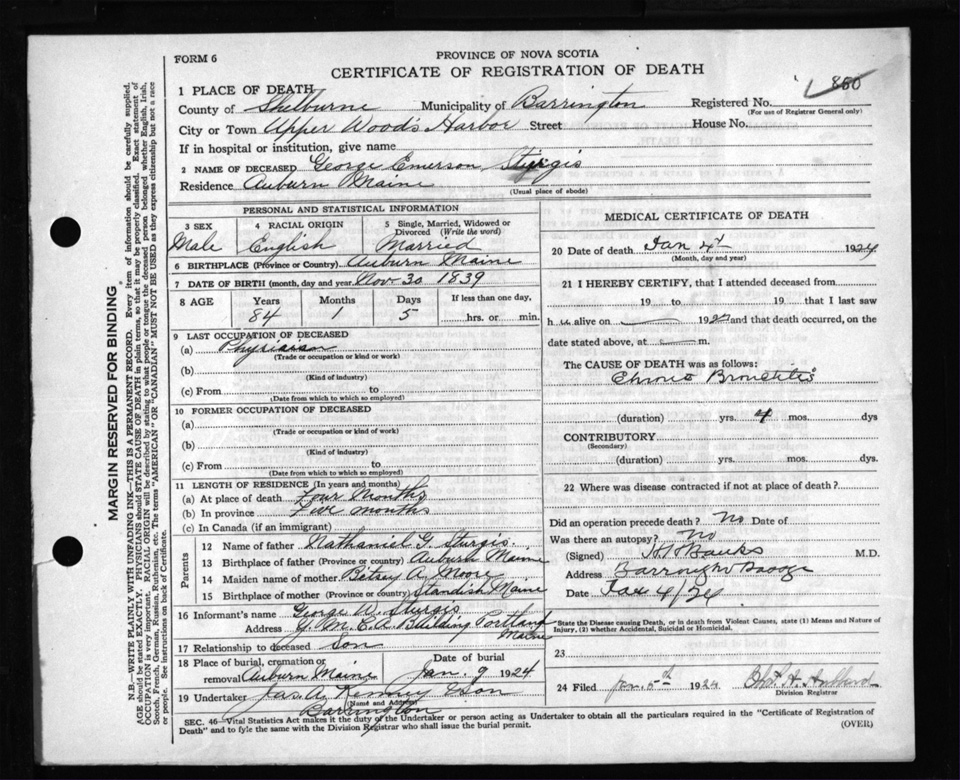 FORM 6
PROVINCE OF NOVA SCOTIA
CERTIFICATE OF REGISTRATION OF DEATH
1 PLACE OF DEATH
County of Shelburne Municipality of Barrington Registered No. 860
(For use of Registrar General only)
City or Town Upper Wood's Harbor Street House No.
If in hospital or institution, give name
2 NAME OF DECEASED George Emerson Sturgis
Residence Auburn Maine
(Usual place of abode)
PERSONAL AND STATISTICAL INFORMATION
3 SEX
Male
4 RACIAL ORIGIN
English
5 Single, Married, Widowed or
Divorced (Write the word)
Married
6 BIRTHPLACE (Province or Country) Auburn Maine
7 DATE OF BIRTH (month, day and year) Nov 30 1839
8 AGE Years Months Days If less than one day,
84 1 5 hrs. or min.
9 LAST OCCUPATION OF DECEASED
(a) Physician
(Trade or occupation or kind of work)
(b)
(Kind of industry)
(c) From to
(Date from which to which so employed)
10 FORMER OCCUPATION OF DECEASED
(a)
(Trade or occupation or kind of work)
(b)
(Kind of industry)
(c) From to
(Date from which to which so employed)
11 LENGTH OF RESIDENCE (In years and months)
(a) At place of death Four Months
(b) In province Five months
(c) In Canada (if an immigrant)
Parents
12 Name of father Nathaniel G. Sturgis
13 Birthplace of father (Province or country) Auburn Maine
14 Maiden name of mother Betsey A. Moore
15 Birthplace of mother (Province or country) Standish Maine
16 Informant's name George W. Sturgis
Address Y. M. C. A. Building Portland
Maine
17 Relationship to deceased Son
18 Place of burial, cremation or
removal Auburn Maine
Date of burial
Jan. 9 1924
19 Undertaker Jas. A. Kenney & Son
(Name and Address)
Barrington
MEDICAL CERTIFICATE OF DEATH
20 Date of death Jan 4th 1924
(Month, day and year)
21 I HEREBY CERTIFY, that I attended deceased from
19 to 19 that I last saw
h alive on 192 and that death occurred, on the
date stated above, at m.
The CAUSE OF DEATH was as follows:
Chronic Bronchitis
(duration) yrs. 4 mos. dys
CONTRIBUTORY
(Secondary)
(duration) yrs. mos. dys.
22 Where was disease contracted if not at place of death?
Did an operation precede death? No Date of
Was there an autopsy? No
(Signed) Banks M.D.
Address
Date Jan 4/24
State the Disease causing Death, or in death from Violent Causes, state (1) Means and Nature of
Injury, (2) whether Accidental, Suicidal or Homicidal.
23
24 Filed Jan. 5th 1924
Division Registrar
SEC. 46—Vital Statistics Act makes it the duty of the Undertaker or person acting as Undertaker to obtain all the particulars required in the "Certificate of Registration of
Death" and to fyle the same with the Division Registrar who shall issue the burial permit.
(OVER)
MARGIN RESERVED FOR BINDING
N.B.—WRITE PLAINLY WITH UNFADING INK.—THIS IS A PERMANENT RECORD. Every item of information should be carefully supplied.
AGE should be stated EXACTLY. PHYSICIANS should STATE CAUSE OF DEATH in plain terms, so that it may be properly classified. Exact statement of
OCCUPATION is very important. RACIAL ORIGIN will be described by stating to what people or tongue the deceased person belonged whether English, Irish,
Scotch, French, German, Russian, Ruthenian, etc. The terms "AMERICAN" OR "CANADIAN" MUST NOT BE USED as they express citizenship but not a race
or people. See instructions on back of Certificate.